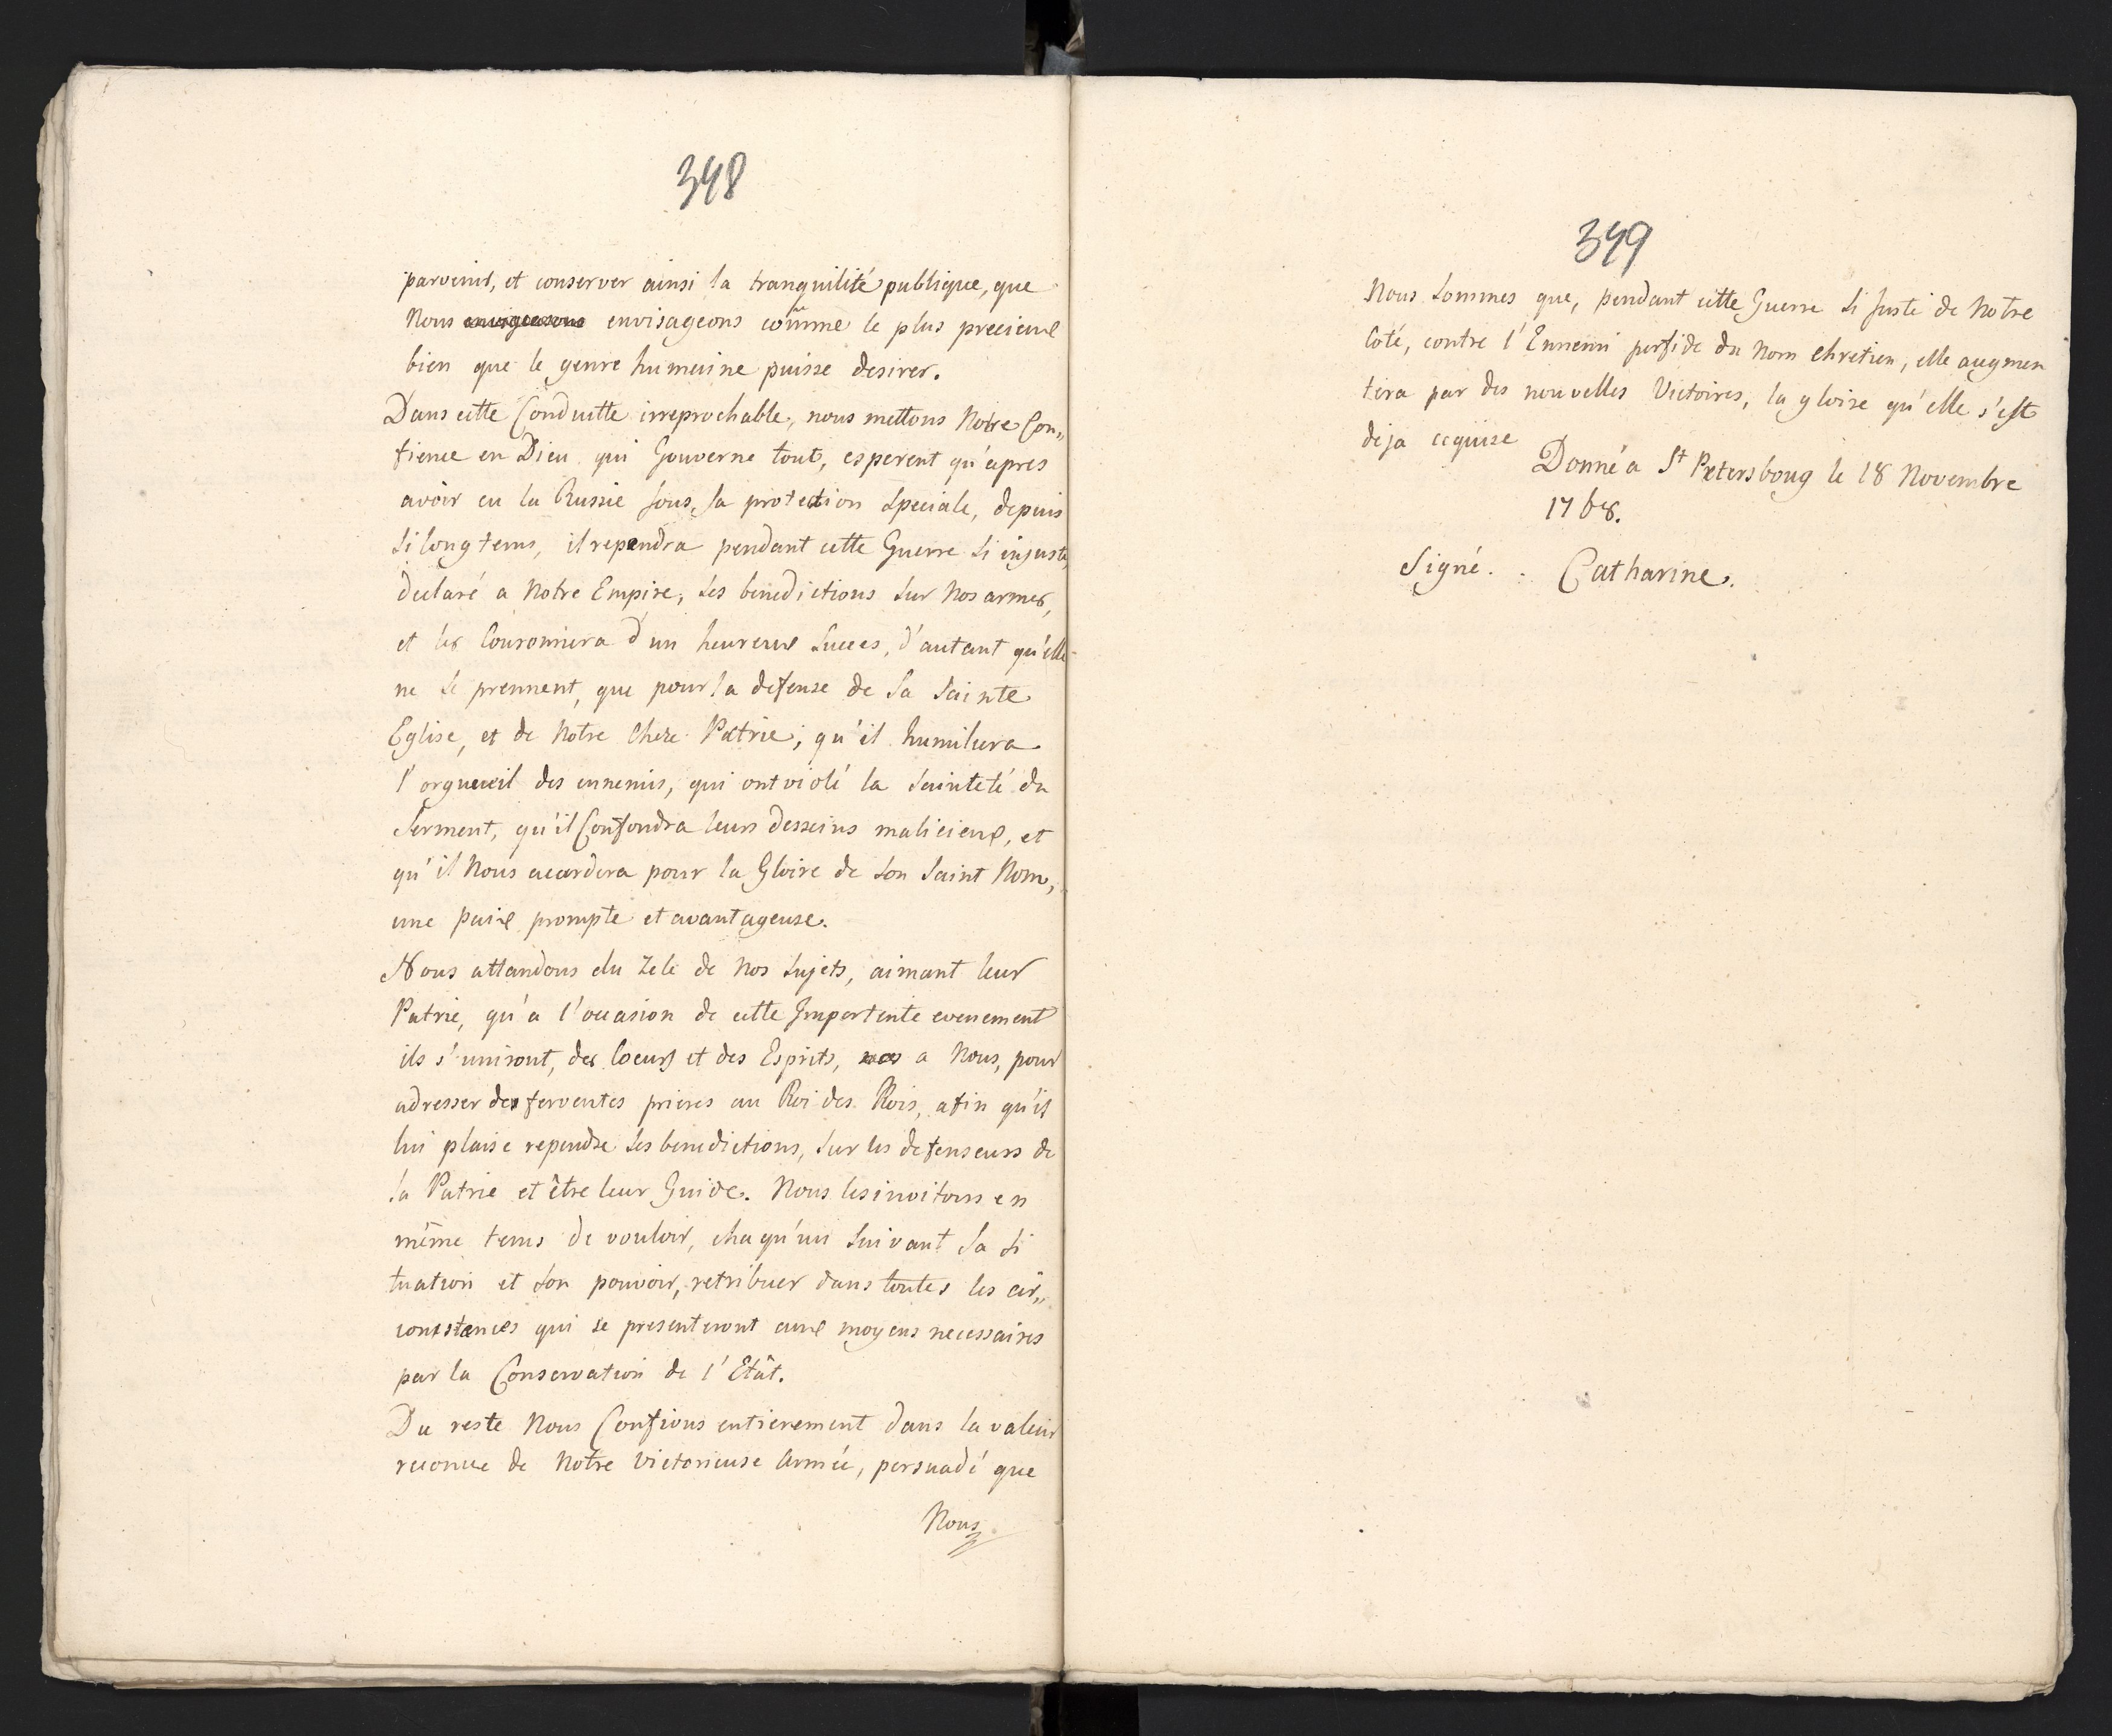 348
parvenir, et conserver ainsi la tranquilité publique, que
Nous envisageons comme le plus precieux
bien que le genre humaine puisse desirer.
Dans cette Conduitte irreprochable, nous mettons Notre Con„
fience en Dieu qui Gouverne tout, esperent qu'apres
avoir eu la Russie sous, sa protection speciale, depuis
si long tems, il rependra pendant cette Guerre si injuste,
declaré a Notre Empire, ses benedictions sur Nos armes,
et les Couronnera d'un heureux succes, d'autant qu'elle
ne se prennent, que pour la defense de sa sainte
Eglise, et de Notre Chere Patrie; qu'il humiliera
l'orgueuil des ennemis, qui ont violé la sainteté du
serment, qu'il Confondra leurs desseins malicieux, et
qu'il Nous accordera pour la Gloire de son saint Nom,
une paix prompte et avantageuse.
Nous attandons du Zele de Nos sujets, aimant leur
Patrie, qu'a l'occasion de cette Importente evenement
ils s'uniront, des Coeurs et des Esprits, a Nous, pour
adresser des ferventes prieres au Roi des Rois, afin qu'il
lui plaise rependre ses benedictions, sur les defenseurs de
la Patrie et être leur Guide. Nous les invitons en
même tems de vouloir, chaqu'un suivant sa si
tuation et son pouvoir, retribuer dans toutes les cir„
constances qui se presenteront aux moyens necessaires
par la Conservation de l'Etât.
Du reste Nous Confions entierement dans la valeur
reconue de Notre victorieuse Armée, persuadé que
Nous
349
Nous sommes que, pendant cette Guerre si juste de Notre
Coté, contre l'Ennemi perfide du Nom Chretien, elle augmen
tera par des nouvelles Victoires, la gloire qu'elle s'est
deja acquise
Donné a St Petersboug le 18 Novembre
1768.
Signé. . Catharine.